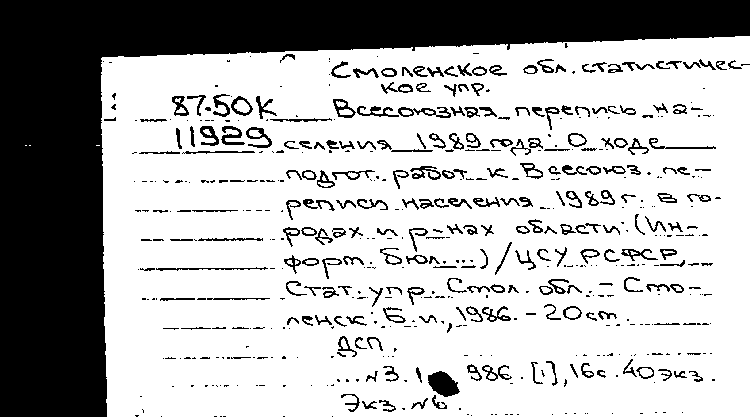 Смоленское обл. статистичес-
кое упр.
87.50К Всесоюзная перепись на-
11929 селения 1989 года: О ходе
подгот. работ к Всесоюз. пе-
реписи населения 1989 г. в го-
родах и р-нах области: (Ин-
форт. бюл. ...) / ЦСУ РСФСР,
Стат. упр. Смол. обл. - Смо-
ленск: Б.и., 1986. - 20 cm.
ДСП.
...№3. 1 986. [1], 16с. 40 экз.
Экз. №6.